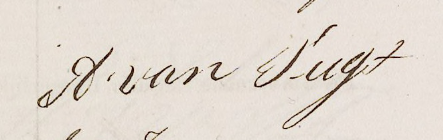 A. van Vugt